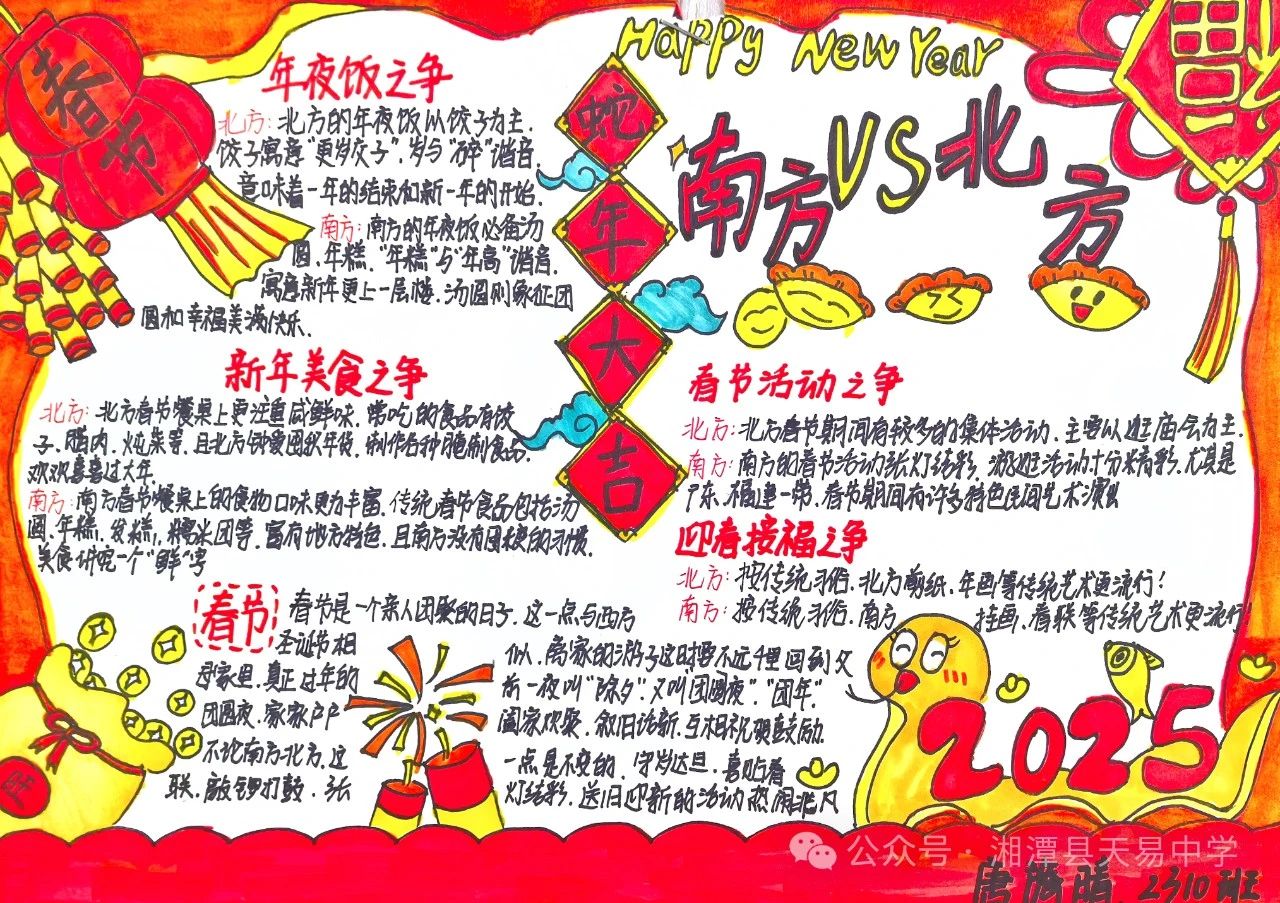 春节
Happy New Year
福
蛇年大吉
南方VS北方
年夜饭之争
北方:北方的年夜饭以饺子为主.
饺子寓意"更岁交子".岁与"碎"谐音.
意味着一年的结束和新一年的开始.
南方:南方的年夜饭必备汤
圆、年糕."年糕"与"年高"谐音.
寓意新年更上一层楼.汤圆则象征团
圆和幸福美满快乐.
新年美食之争
北方:北方春节餐桌上更注重咸鲜味.常吃的食品有饺
子.腊肉.炖菜等.且北方如爱囤积年货.制作各种腌制食品.
欢欢喜喜过大年.
南方:南方春节餐桌上的食物口味更为丰富.传统春节食品包括汤
圆.年糕.发糕.糯米团等.富有地方特色.且南方没有囤的习惯.
美食讲究一个"鲜"字
春节活动之争
北方:北方春节期间有较多的集体活动.主要以逛庙会为主.
南方:南方的春节活动张灯结彩.游逛活动十分米青彩.尤其是
广东.福建一带.春节期间有许多特色民间艺术演出
迎春接福之争
北方:按传统习俗.北方剪纸.年画等传统艺术更流行!
南方:按传统习俗.南方 挂画.春联等传统艺术更流行
春节
春节是一个亲人团聚的日子.这一点与西方
圣诞节相 似.离家的游子这时要不远千里回到父
母家里.真正过年的 前一夜叫"除夕".又叫"团圆夜""团年".
团圆夜.家家户户 阖家欢聚.叙旧话新.互相祝贺鼓励.
不论南方北方.这 一点是不变的.守岁达旦.喜贴春
联.敲锣打鼓.张 灯结彩.送旧迎新的活动热闹非凡
旺
2025
公众号·湘潭县天易中学
唐 晴 2310班